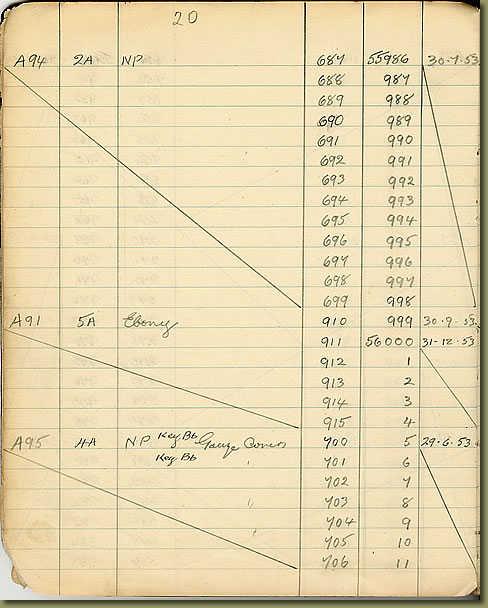 20
A94 2A NP 687 55986 30-7-53
688 987
689 988
690 989
691 990
692 991
693 992
694 993
695 994
696 995
697 996
698 997
699 998
A91 5A Ebony 910 999 30-9-53
911 56000 31-12-53
912 1
913 2
914 3
915 4
A95 4A NP Key Bb Gauze Cones 700 5 29-6-53
Key Bb " 701 6
702 7
" 703 8
704 9
705 10
706 11